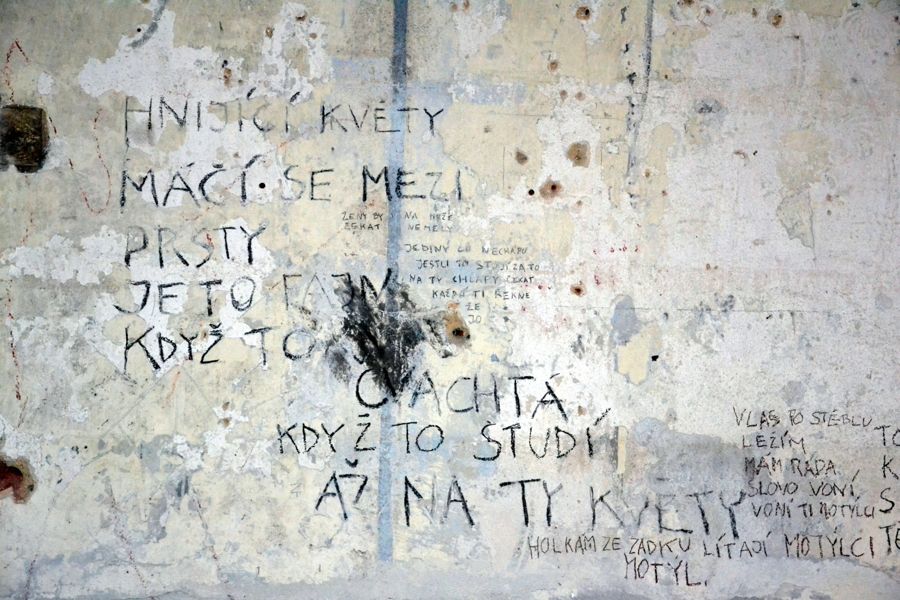 HNIJÍCÍ KVĚTY
MÁČÍ SE MEZI
PRSTY
JE TO FAJN
KDYŽ TO
ČVACHTÁ
KDYŽ TO STUDÍ
AŽ NA TY KVĚTY
ŽENY BY NA MUŽE
ČEKAT NEMĚLY
JEDINY CO NECHAPU
JESTLI TO STOJÍ ZA TO
NA TY CHLAPY ČEKAT
KAŽDÁ TI ŘEKNE
ŽE
JO
VLAS PO STÉBLU
LEZÍM
MÁM RÁDA
SLOVO VONÍ
VONÍ TI MOTÝLCI
HOLKÁM ZE ZADKU LÍTAJÍ MOTÝLCI
MOTÝL.